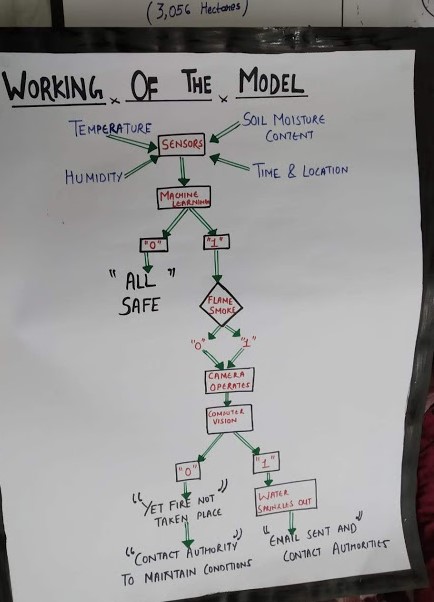 (3,056 Hectares)
WORKING OF THE MODEL
TEMPERATURE
SOIL MOISTURE
CONTENT
SENSORS
HUMIDITY
TIME & LOCATION
MACHINE
LEARNING
"0"
"1"
"ALL"
SAFE
FLAME
SMOKE
"0"
"1"
CAMERA
OPERATES
COMPUTER
VISION
"0"
"1"
"YET FIRE NOT"
TAKEN PLACE
WATER
OUT
"EMAIL SENT AND"
CONTACT AUTHORITIES
"CONTACT AUTHORITY"
TO MAINTAIN CONDITIONS